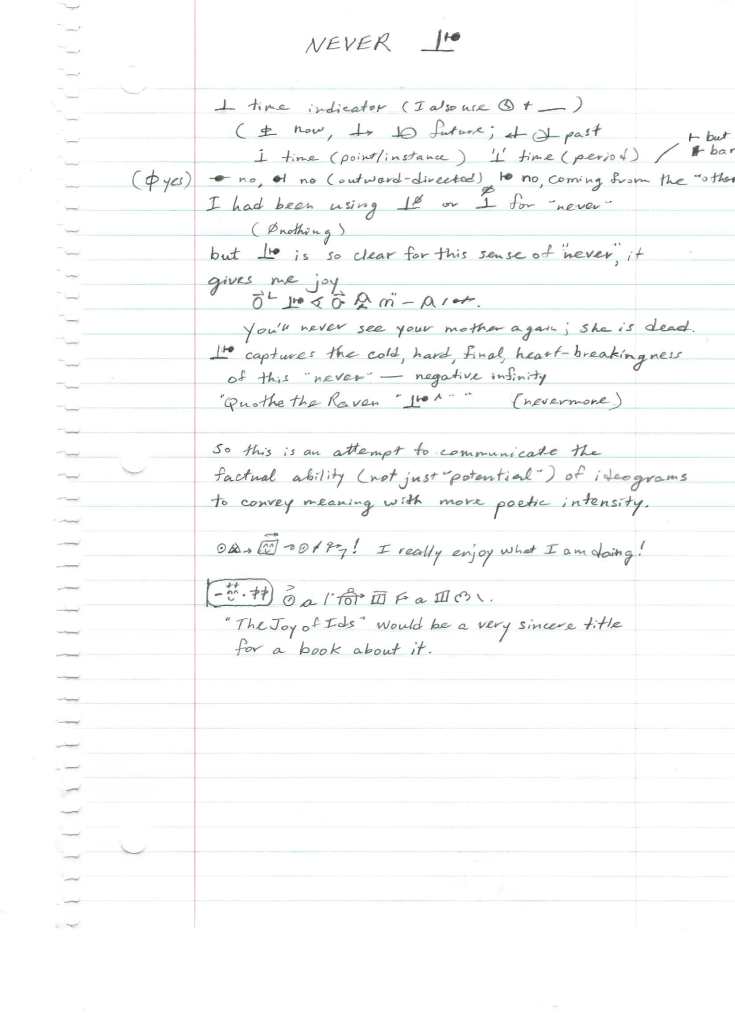 NEVER
⊥ time indicator (I also use + __)
( now, future; past
i time (point/instance) '⊥' time (period) / ⊢ but
bar
(ϕ yes) no, no (outward-directed) no, coming from the "other
I had been using or for "never"
(Ø nothing)
but is so clear for this sense of "never", it
gives me joy
You'll never see your mother again; she is dead.
captures the cold, hard, final, heart-breakingness
of this "never" — negative infinity
"Quothe the Raven " " " (nevermore)
So this is an attempt to communicate the
factual ability (not just "potential") of ideograms
to convey meaning with more poetic intensity.
! I really enjoy what I am doing!
"The Joy of Ids" would be a very sincere title
for a book about it.